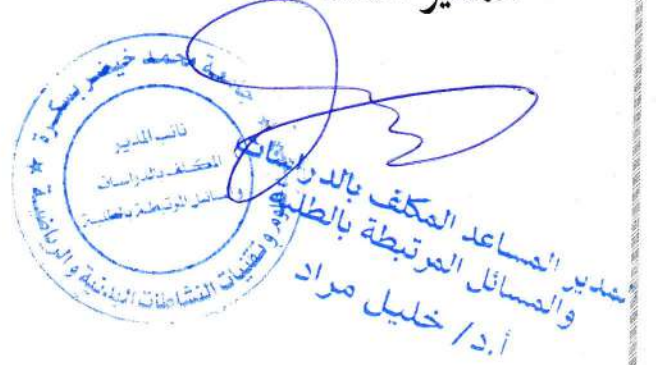 جامعة محمد خيضر بسكرة
نائب المدير
المكلف بالدراسات
والمسائل المرتبطة بالطلبة
وتقنيات النشاطات البدنية و الرياضية
المدير المساعد المكلف بالدراسات
والمسائل المرتبطة بالطلبة
أ.د/ خليل مراد